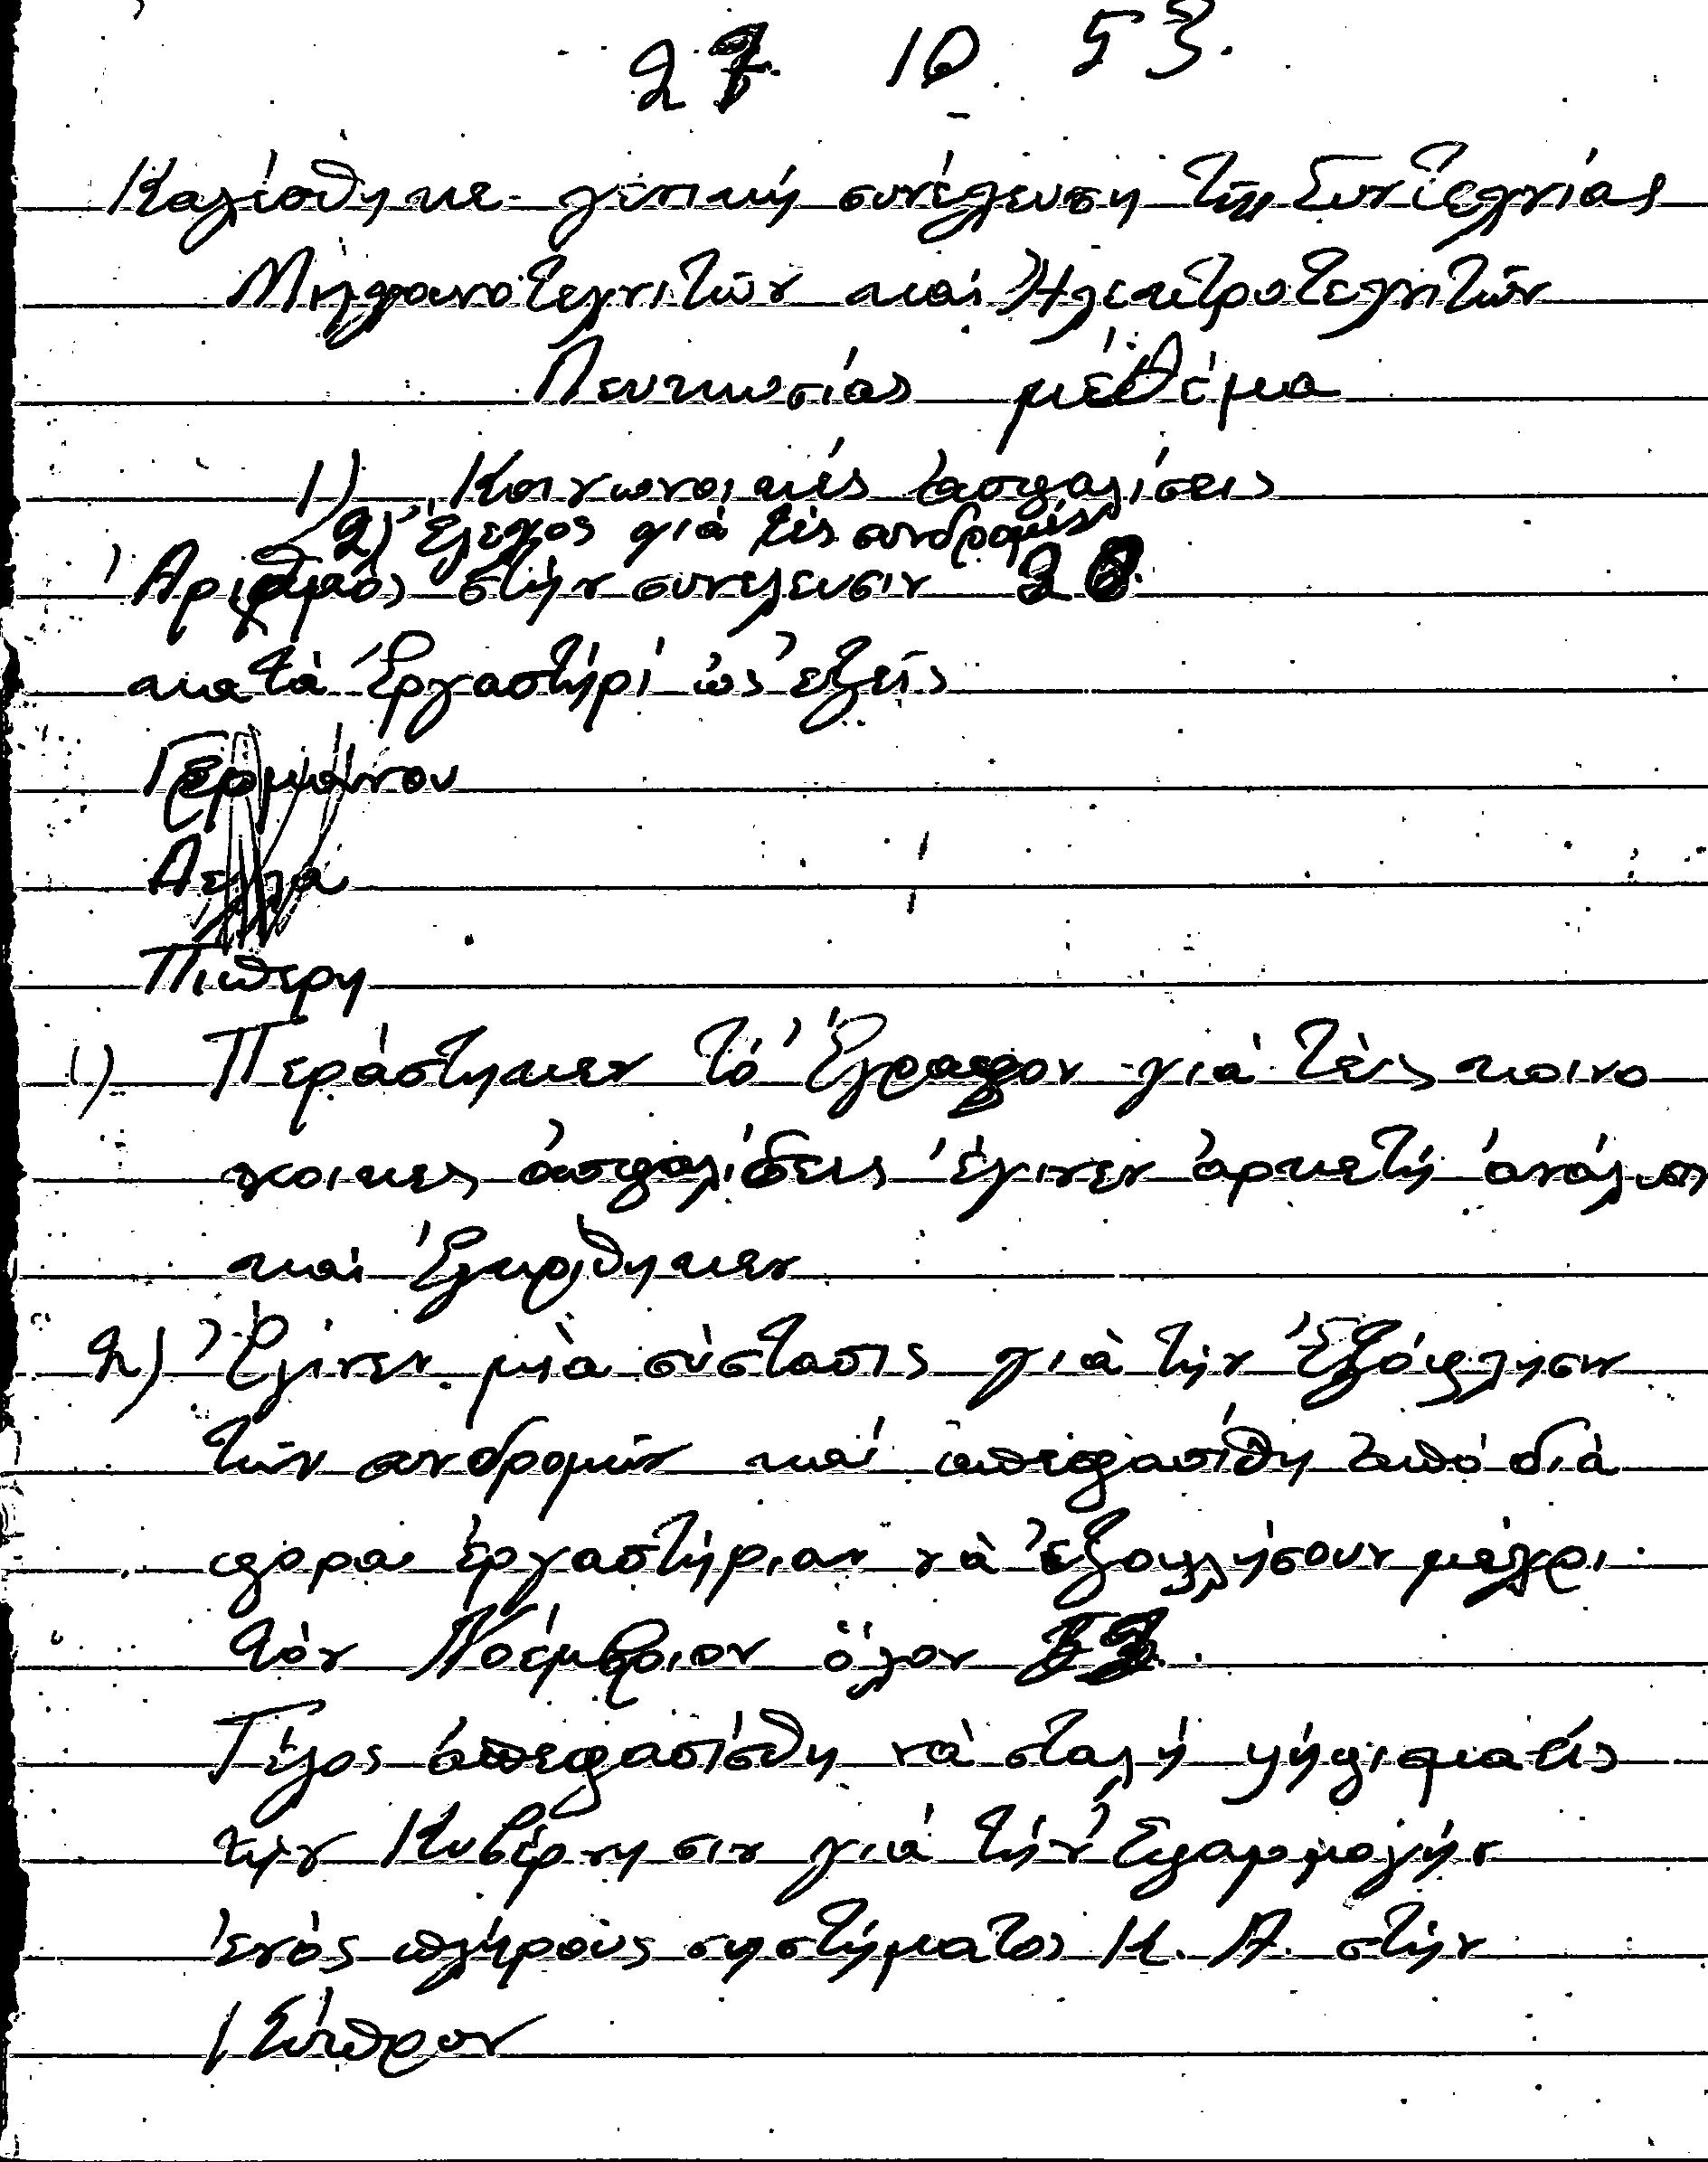 27 10 53.
Καλέσθηκε γενική συνέλευση της Συντεχνίας
Μηχανοτεχνιτῶν καί Ἠλεκτροτεχνιτῶν
Λευκωσίας μέ θέμα
1) Κοινωνοικές ἀσφαλίσεις
2) Ἔλεγχος γιά τές συνδρομές
Ἀριθμός στήν συνελευσιν
κατά Ἐργαστήρι ὡς ἐξεῖς
Γερμανου
Λελλα
Πιπερη
1) Περάστηκεν τό Ἔγραφον γιά τές κοινο
νοικες ἀσφαλίσεις ἐγινεν ἀρκετή ἀνάλυση
καί Ἐγκρίθηκεν
2) Ἐγίνεν μιὰ σύστασις γιὰ τήν Ἐξόφλησιν
τῶν συνδρομῶν καί ἀπεφασίθη ἀπό διὰ
φορα ἐργαστήριαν νὰ ἐξοφλήσουν μέχρι
τόν Νοέμβριον ὅλον
Τέλος ἀπεφασίσθη νὰ σταλή ψήφισμα εἰς
τήν Κυβέρνησιν γιά τήν Ἐφαρμογήν
ἑνός πλήρους συστήματος Κ. Α. στήν
Κύπρον